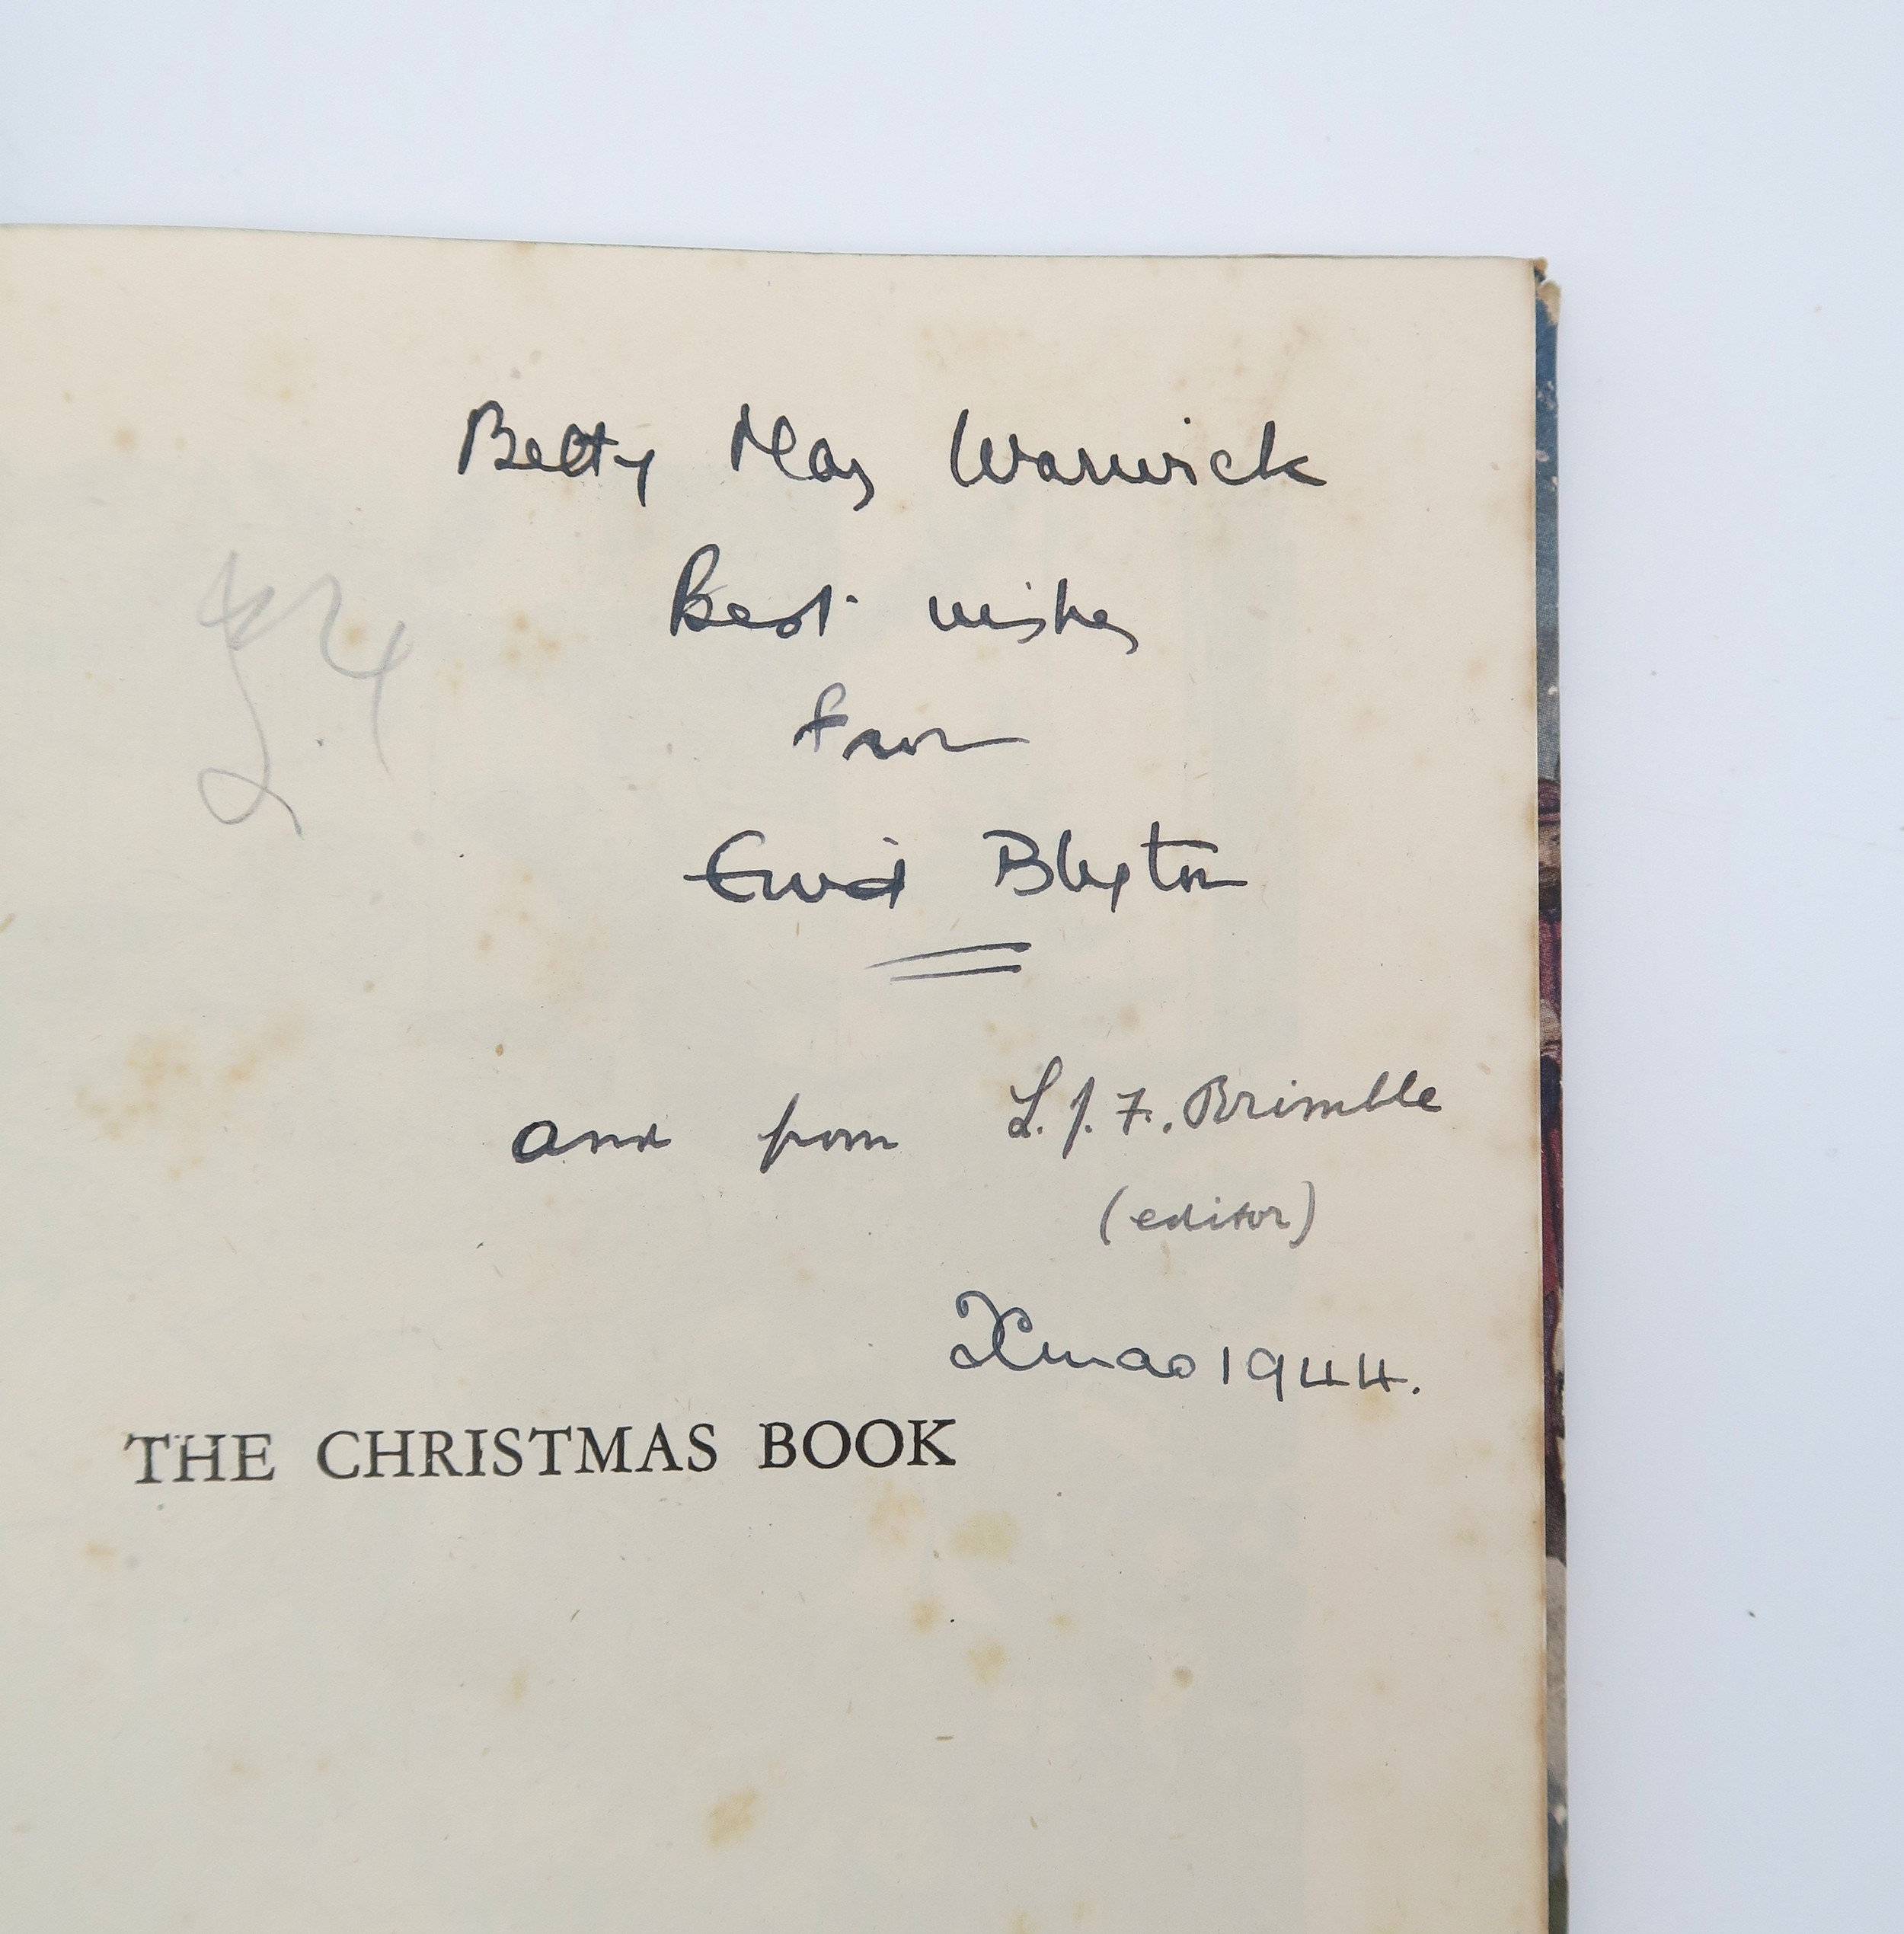 Betty May Warwick
Best wishes
from
Enid Blyton
and from L.J.F. Brimble
(editor)
Xmas 1944.
THE CHRISTMAS BOOK